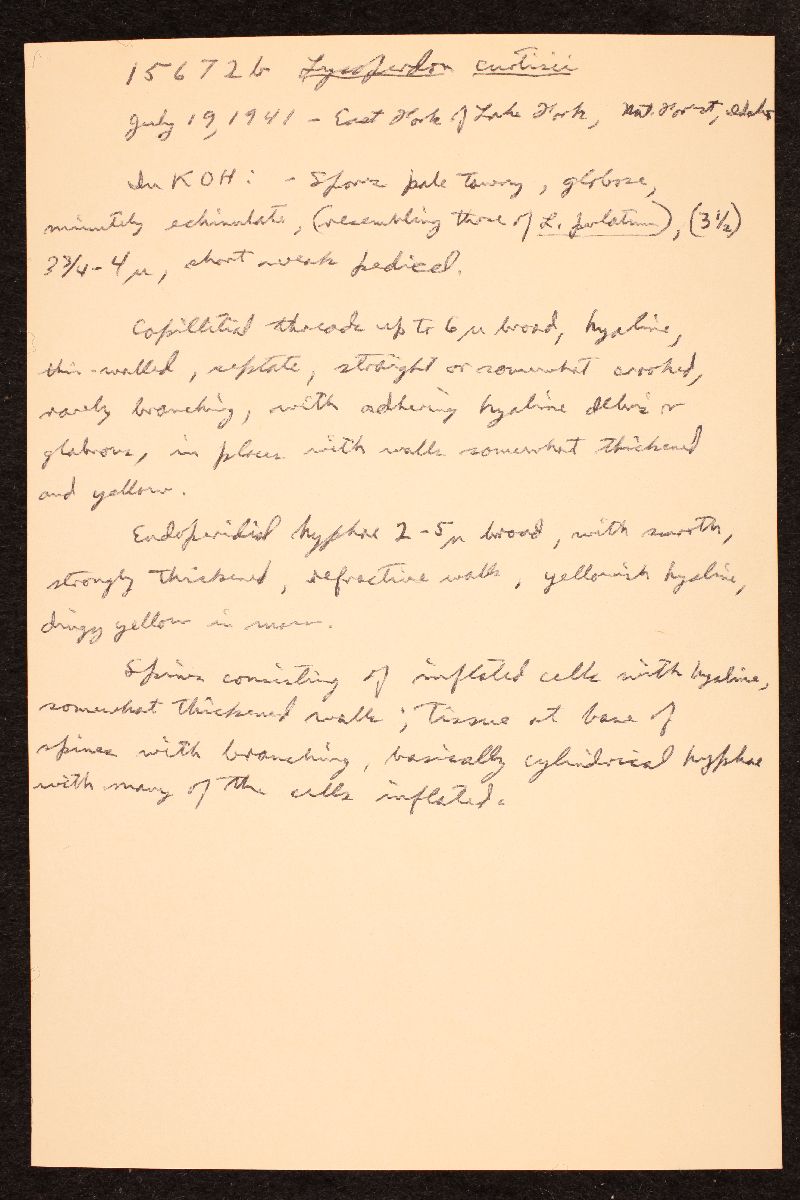 15672b Lycoperdon curtisii
July 19, 1941 - East Fork of Lake Fork, Nat. Forest, Idaho
In KOH: - Spores pale tawny, globose,
minutely echinulate, (resembling those of L. pulatum), (3½)
3¾-4 µ, short weak pedicel.
Capillitial threads up to 6 µ broad, hyaline,
thin-walled, septate, straight or somewhat crooked,
rarely branching, with adhering hyaline debris or
glabrous, in places with walls somewhat thickened
and yellow.
Endoperidial hyphae 2-5 µ broad, with smooth,
strongly thickened, refractive walls, yellowish hyaline,
dingy yellow in mass.
Spines consisting of inflated cells with hyaline,
somewhat thickened walls; tissue at base of
spines with branching, basically cylindrical hyphae
with many of the cells inflated.